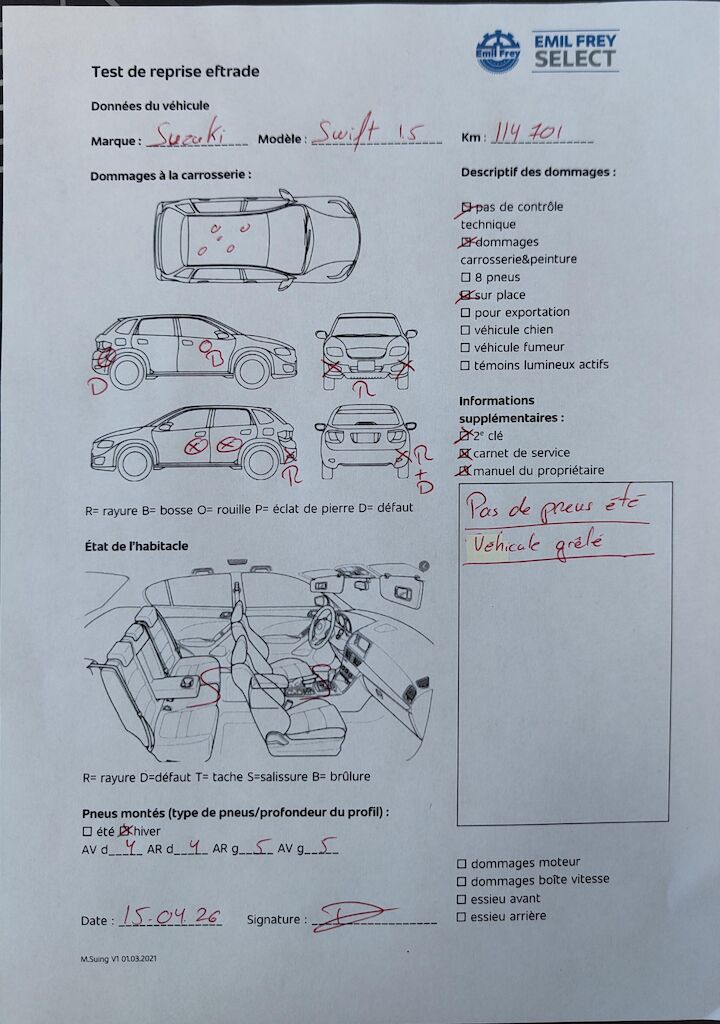 Emil Frey
EMIL FREY
SELECT
Test de reprise eftrade
Données du véhicule
Marque : Suzuki Modèle : Swift 1.5 Km : 114'701
Dommages à la carrosserie :
D
B
R
R
R
+
D
R= rayure B= bosse O= rouille P= éclat de pierre D= défaut
État de l'habitacle
S
S
R= rayure D=défaut T= tache S=salissure B= brûlure
Pneus montés (type de pneus/profondeur du profil) :
☐ été ☒ hiver
AV d 4 AR d 4 AR g 5 AV g 5
Date : 15.04.26 Signature :
M.Suing V1 01.03.2021
Descriptif des dommages :
☒ pas de contrôle
technique
☒ dommages
carrosserie&peinture
☐ 8 pneus
☒ sur place
☐ pour exportation
☐ véhicule chien
☐ véhicule fumeur
☐ témoins lumineux actifs
Informations
supplémentaires :
☒ 2e clé
☒ carnet de service
☒ manuel du propriétaire
Pas de pneus été
Véhicule grêlé
☐ dommages moteur
☐ dommages boîte vitesse
☐ essieu avant
☐ essieu arrière